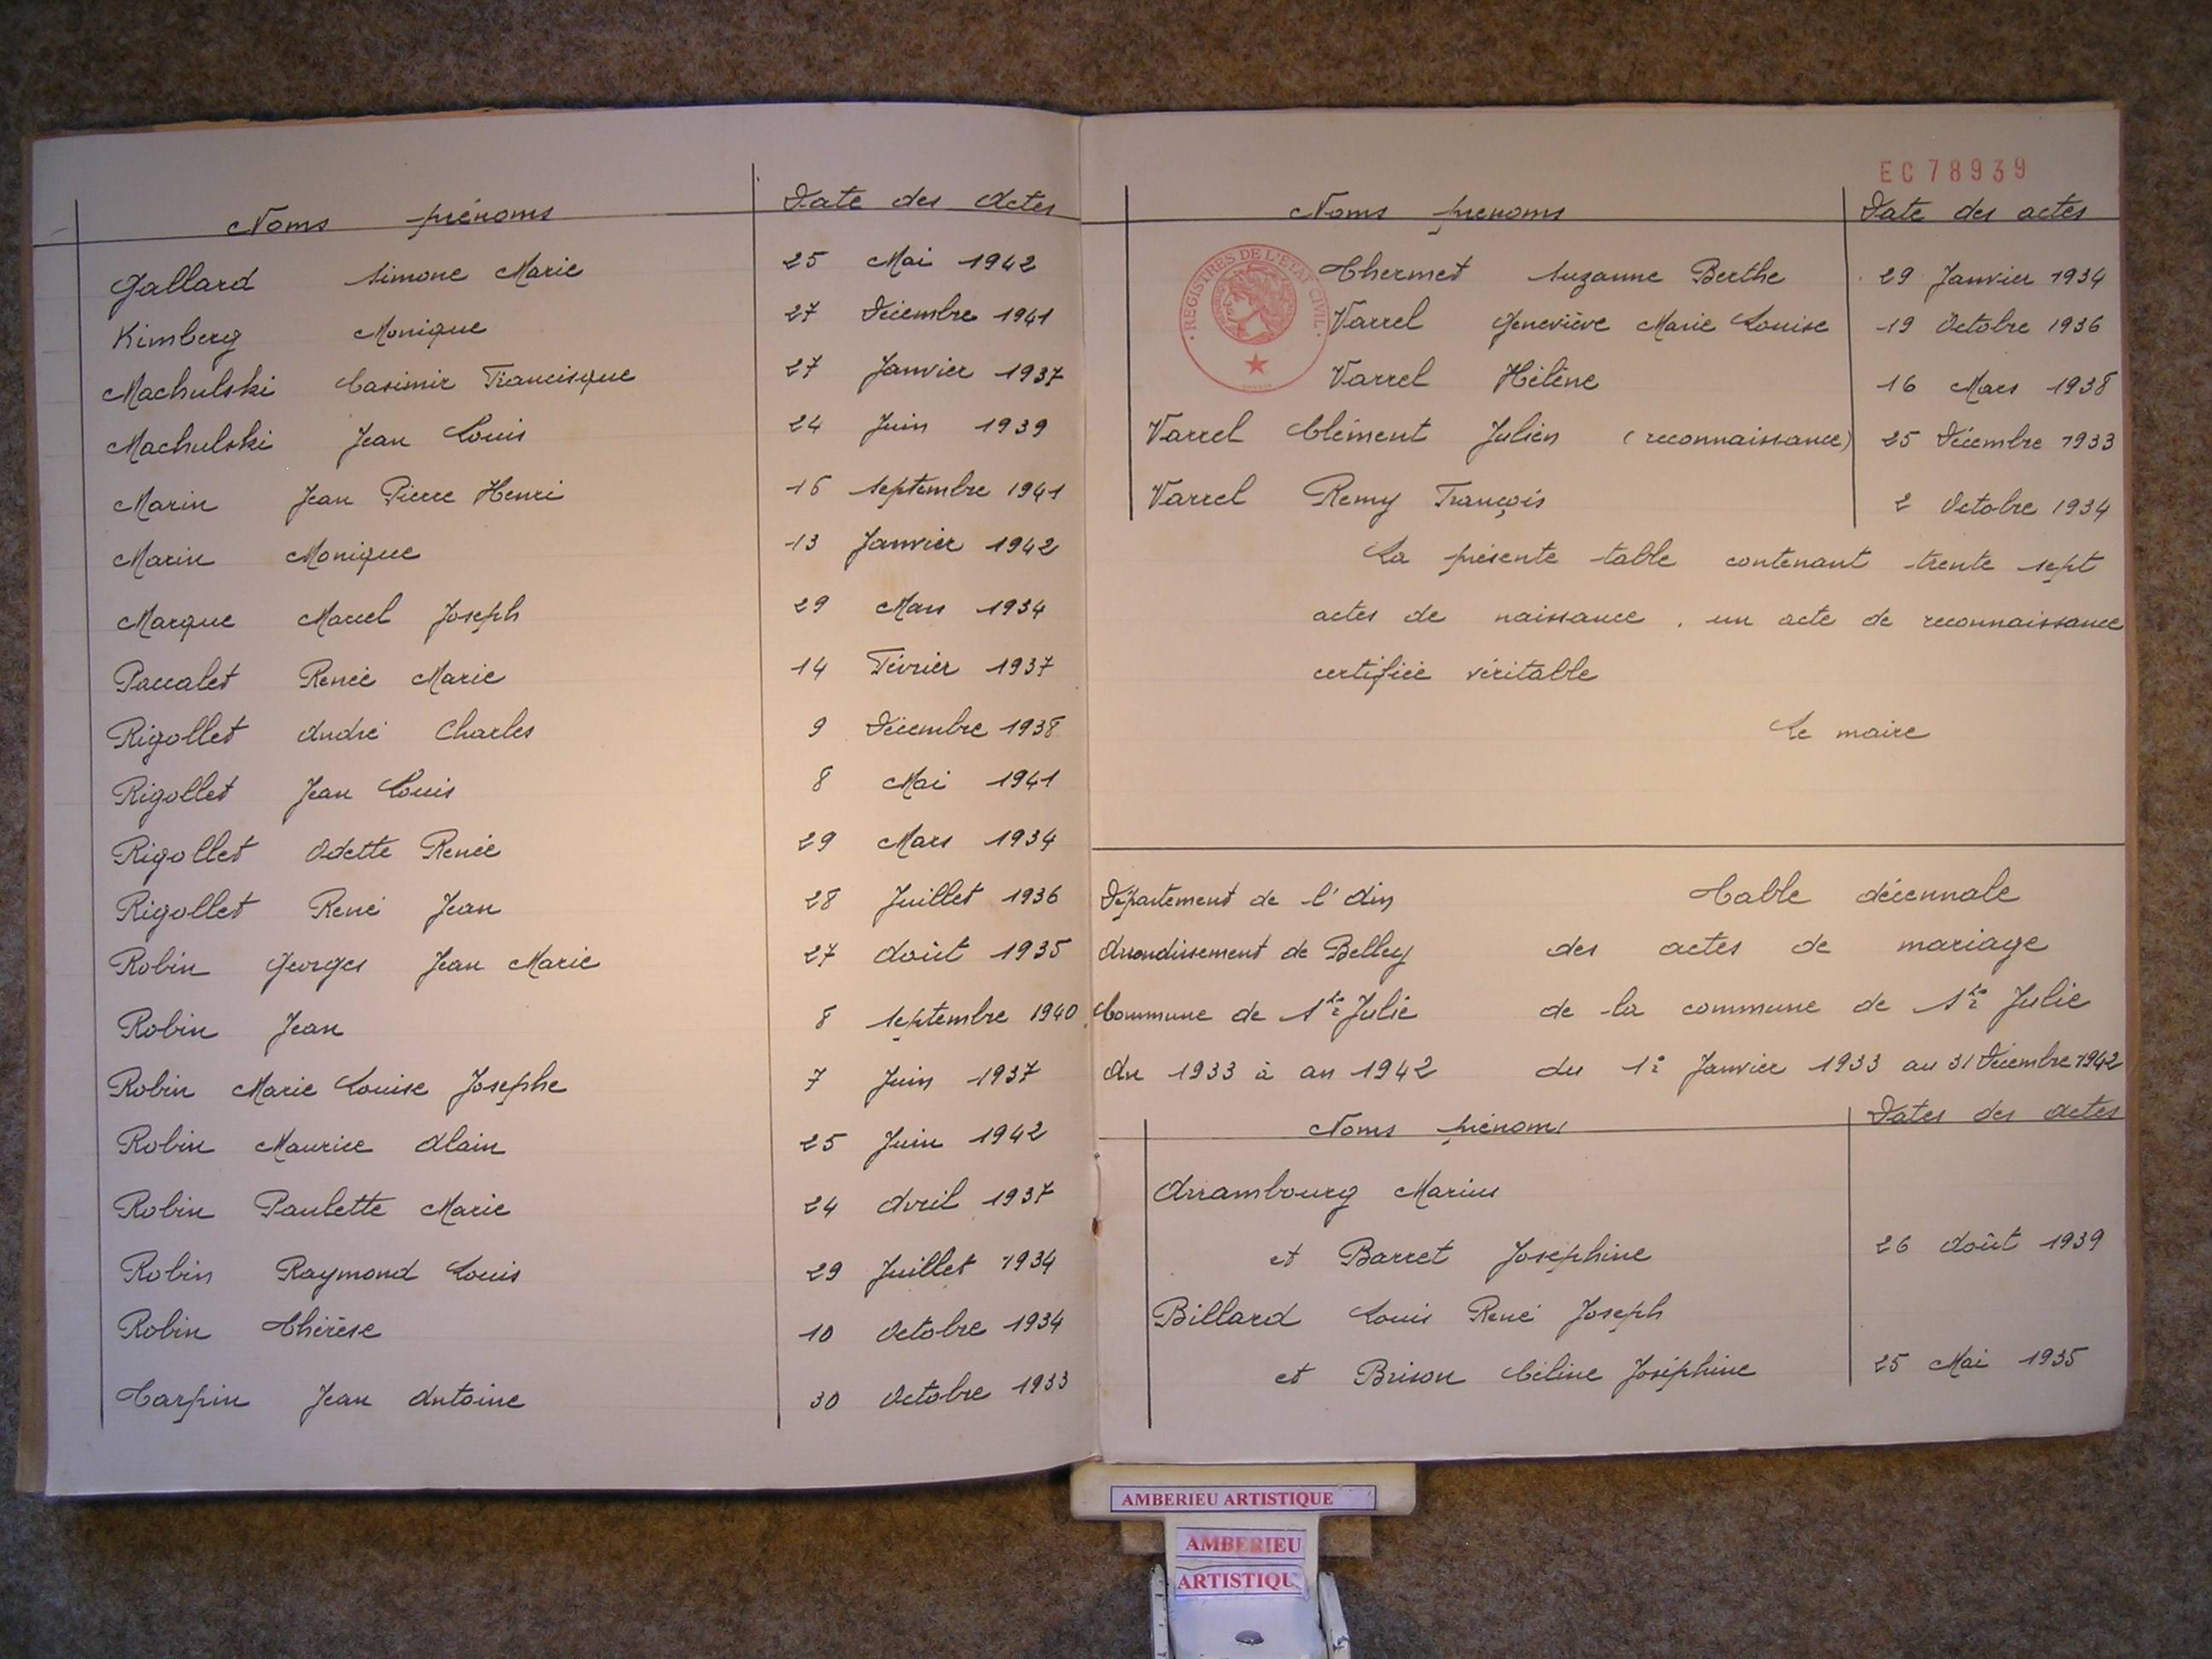 Noms prénoms Date des Actes
Gallard Simone Marie 25 Mai 1942
Kimberg Monique 27 Décembre 1941
Machulski Casimir Francisque 27 Janvier 1937
Machulski Jean Louis 24 Juin 1939
Marin Jean Pierre Henri 16 Septembre 1941
Marin Monique 13 Janvier 1942
Marque Marcel Joseph 29 Mars 1934
Paccalet Renée Marie 14 Février 1937
Rigollet André Charles 9 Décembre 1938
Rigollet Jean Louis 8 Mai 1941
Rigollet Odette Renée 29 Mars 1934
Rigollet René Jean 28 Juillet 1936
Robin Georges Jean Marie 27 Août 1935
Robin Jean 8 Septembre 1940
Robin Marie Louise Josephe 7 Juin 1937
Robin Maurice Alain 25 Juin 1942
Robin Paulette Marie 24 Avril 1937
Robin Raymond Louis 29 Juillet 1934
Robin Thérèse 10 Octobre 1934
Tarpin Jean Antoine 30 Octobre 1933
EC78939
Noms prenoms Date des actes
REGISTRES DE L'ETAT CIVIL
Thermet Suzanne Berthe 29 Janvier 1934
Varrel Geneviève Marie Louise 19 Octobre 1936
Varrel Hélène 16 Mars 1938
Varrel Clément Julien (reconnaissance) 25 Décembre 1933
Varrel Remy François 2 Octobre 1934
La présente table contenant trente sept
actes de naissance, un acte de reconnaissance
certifiée véritable
Le maire
Département de l'Ain Table décennale
Arrondissement de Belley des actes de mariage
Commune de Ste Julie de la commune de Ste Julie
An 1933 à an 1942 du 1er Janvier 1933 au 31 Décembre 1942
Noms prénoms Dates des actes
Arrambourg Marius
et Barret Joséphine 26 Août 1939
Billard Louis René Joseph
et Brison Céline Joséphine 25 Mai 1935
AMBERIEU ARTISTIQUE
AMBERIEU
ARTISTIQU